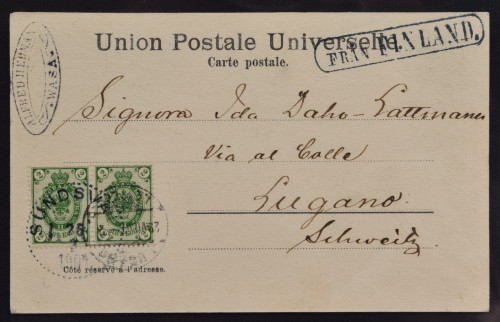 Union Postale Universelle.
FRÅN FINLAND.
Carte postale.
ALFRED HEDMAN
WASA
Signora Ida Daho-Lattmann
Via al Colle
Lugano
Schweitz
2 2
SUNDSV
Côté réservé à l'adresse.